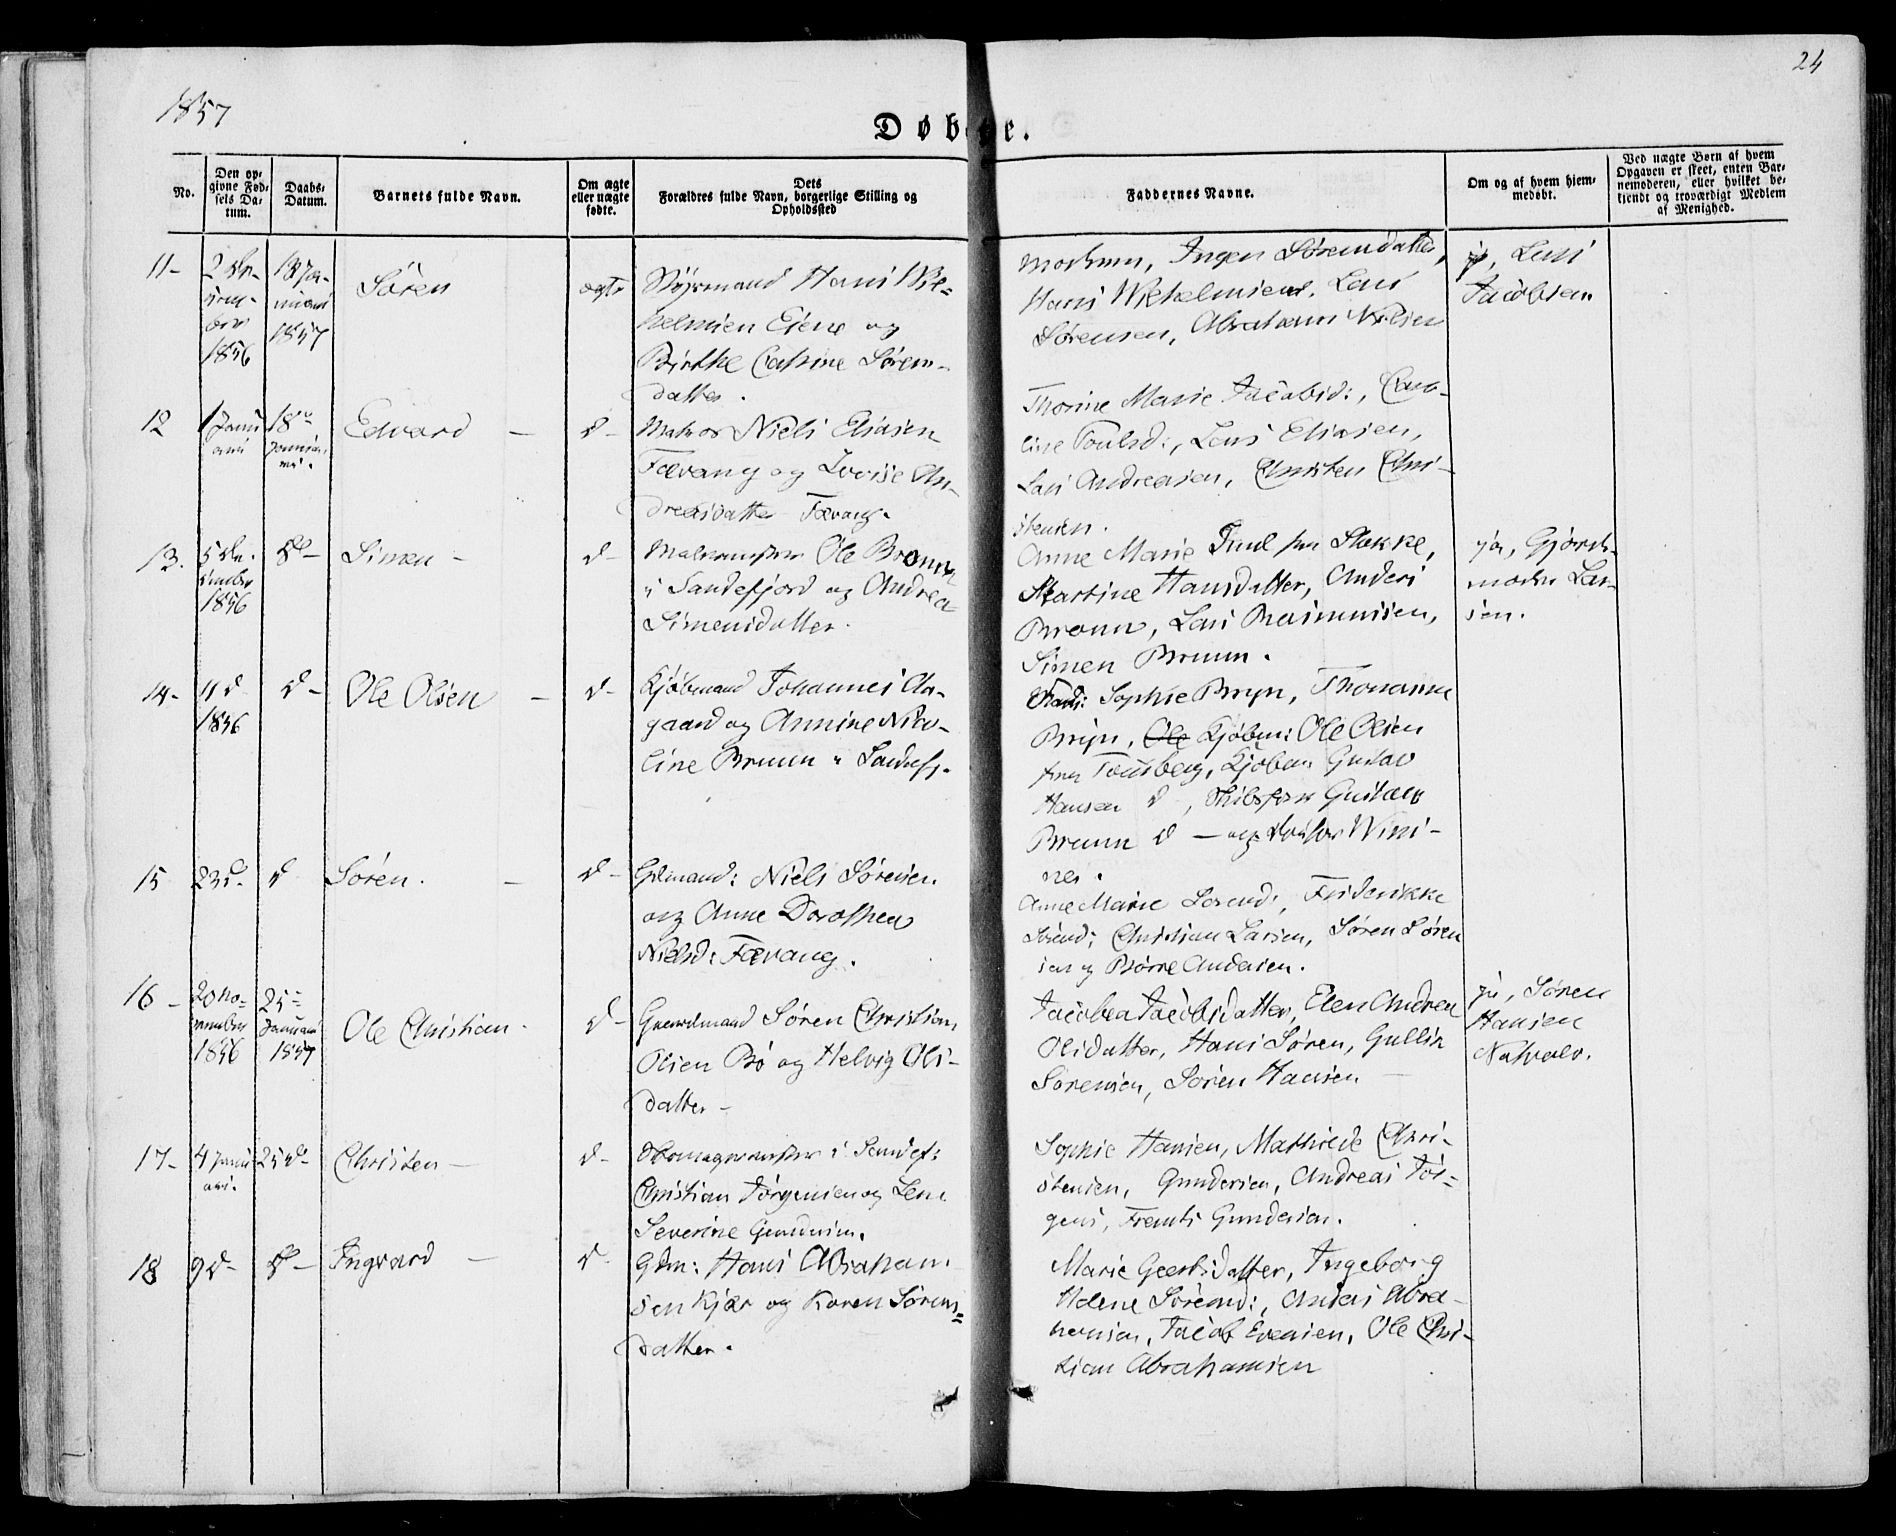 24
1857
Døbte.
No.
Den op-
givne Fød-
sels Da-
tum.
Daabs-
Datum.
Barnets fulde Navn.
Om ægte
eller uægte
fødte.
Dets
Forældres fulde Navn, borgerlige Stilling og
Opholdssted
Faddernes Navne.
Om og af hvem hjem-
medøbt.
Ved uægte Børn af hvem
Opgaven er skeet, enten Bar-
nemoderen, eller hvilket be-
kjendt og troværdigt Medlem
af Menighed.
11-
2 De-
cem-
ber
1856
18 Ja-
nuar
1857
Søren
ægte
Styrmand Hans Wil-
helmsen Eiene og
Birthe Cathrine Sørens-
datter.
Moderen, Inger Sørensdatter,
Hans Wilhelmsen, Lars
Sørensen, Abraham Nilsen
ja, Lars
Jacobsen
12
1 Janu
ari
18de
Januar
Edvard -
d-
Matros Niels Eliasen
Fævang og Lovise An-
dreasdatter Fævang.
Thorine Marie Jacobsd:, Caro-
line Poulsd:, Lars Eliasen,
Lars Andreasen, Christen Chri-
stensen.
13.
5 De-
cember
1856
do-
Simen -
d-
Ole Bruun
i Sandefjord og Andrea
Simensdatter.
Anne Marie fra Stokke,
Martine Hansdatter, Anders
Bruun, Lars Rasmussen,
Simen Bruun.
ja, Gjord-
moder Lar-
sen.
14-
11 d
1856
d-
Ole Olsen -
d-
Kjøbmand Johannes Aa-
gaard og Annine Nico-
line Bruun i Sandefj.
Sophie Bryn, Thomanne
Bryn, Ole Kjøbm: Ole Olsen
fra Tønsberg, Kjøbm: Gustav
Hansen d, Skibsfører Gustav
Bruun d - og Doctor Wini-
nes.
15
23 d-
d
Søren. -
d-
Gdmand: Niels Sørensen
og Anne Dorothea
Nielsd: Fævang.
Anne Marie Sørensd:, Friderikke
Sørensd: Christian Larsen, Søren Søren
sen og Børre Andersen.
16-
20 No-
vember
1856
25-
Januari
1857
Ole Christian.
d-
Gaardmand Søren Christian
Olsen Bø og Helvig Ols-
datter-
Jacobea Jacobsdatter, Elen Andrea
Olsdatter, Hans Søren, Gullik
Sørensen, Søren Hansen -
ja, Søren
Hansen
Natvale.
17-
4 Janu
ari.
25 d-
Christen -
d-
Skomagermester i Sandef:
Christian Jørgensen og Lene
Severine Gundersen.
Sophie Hansen, Mathilde Chri-
stensen, Gundersen, Andreas Jør-
gens, Frents Gundersen.
18
9 d-
do-
Ingvard -
d-
Gdm: Hans Abraham-
sen Kjær og Karen Sørens-
datter.
Marie Geertsdatter, Ingeborg
Helene Sørensd:, Anders Abra-
hamsen, Jacob Evensen, Ole Chri-
stian Abrahamsen